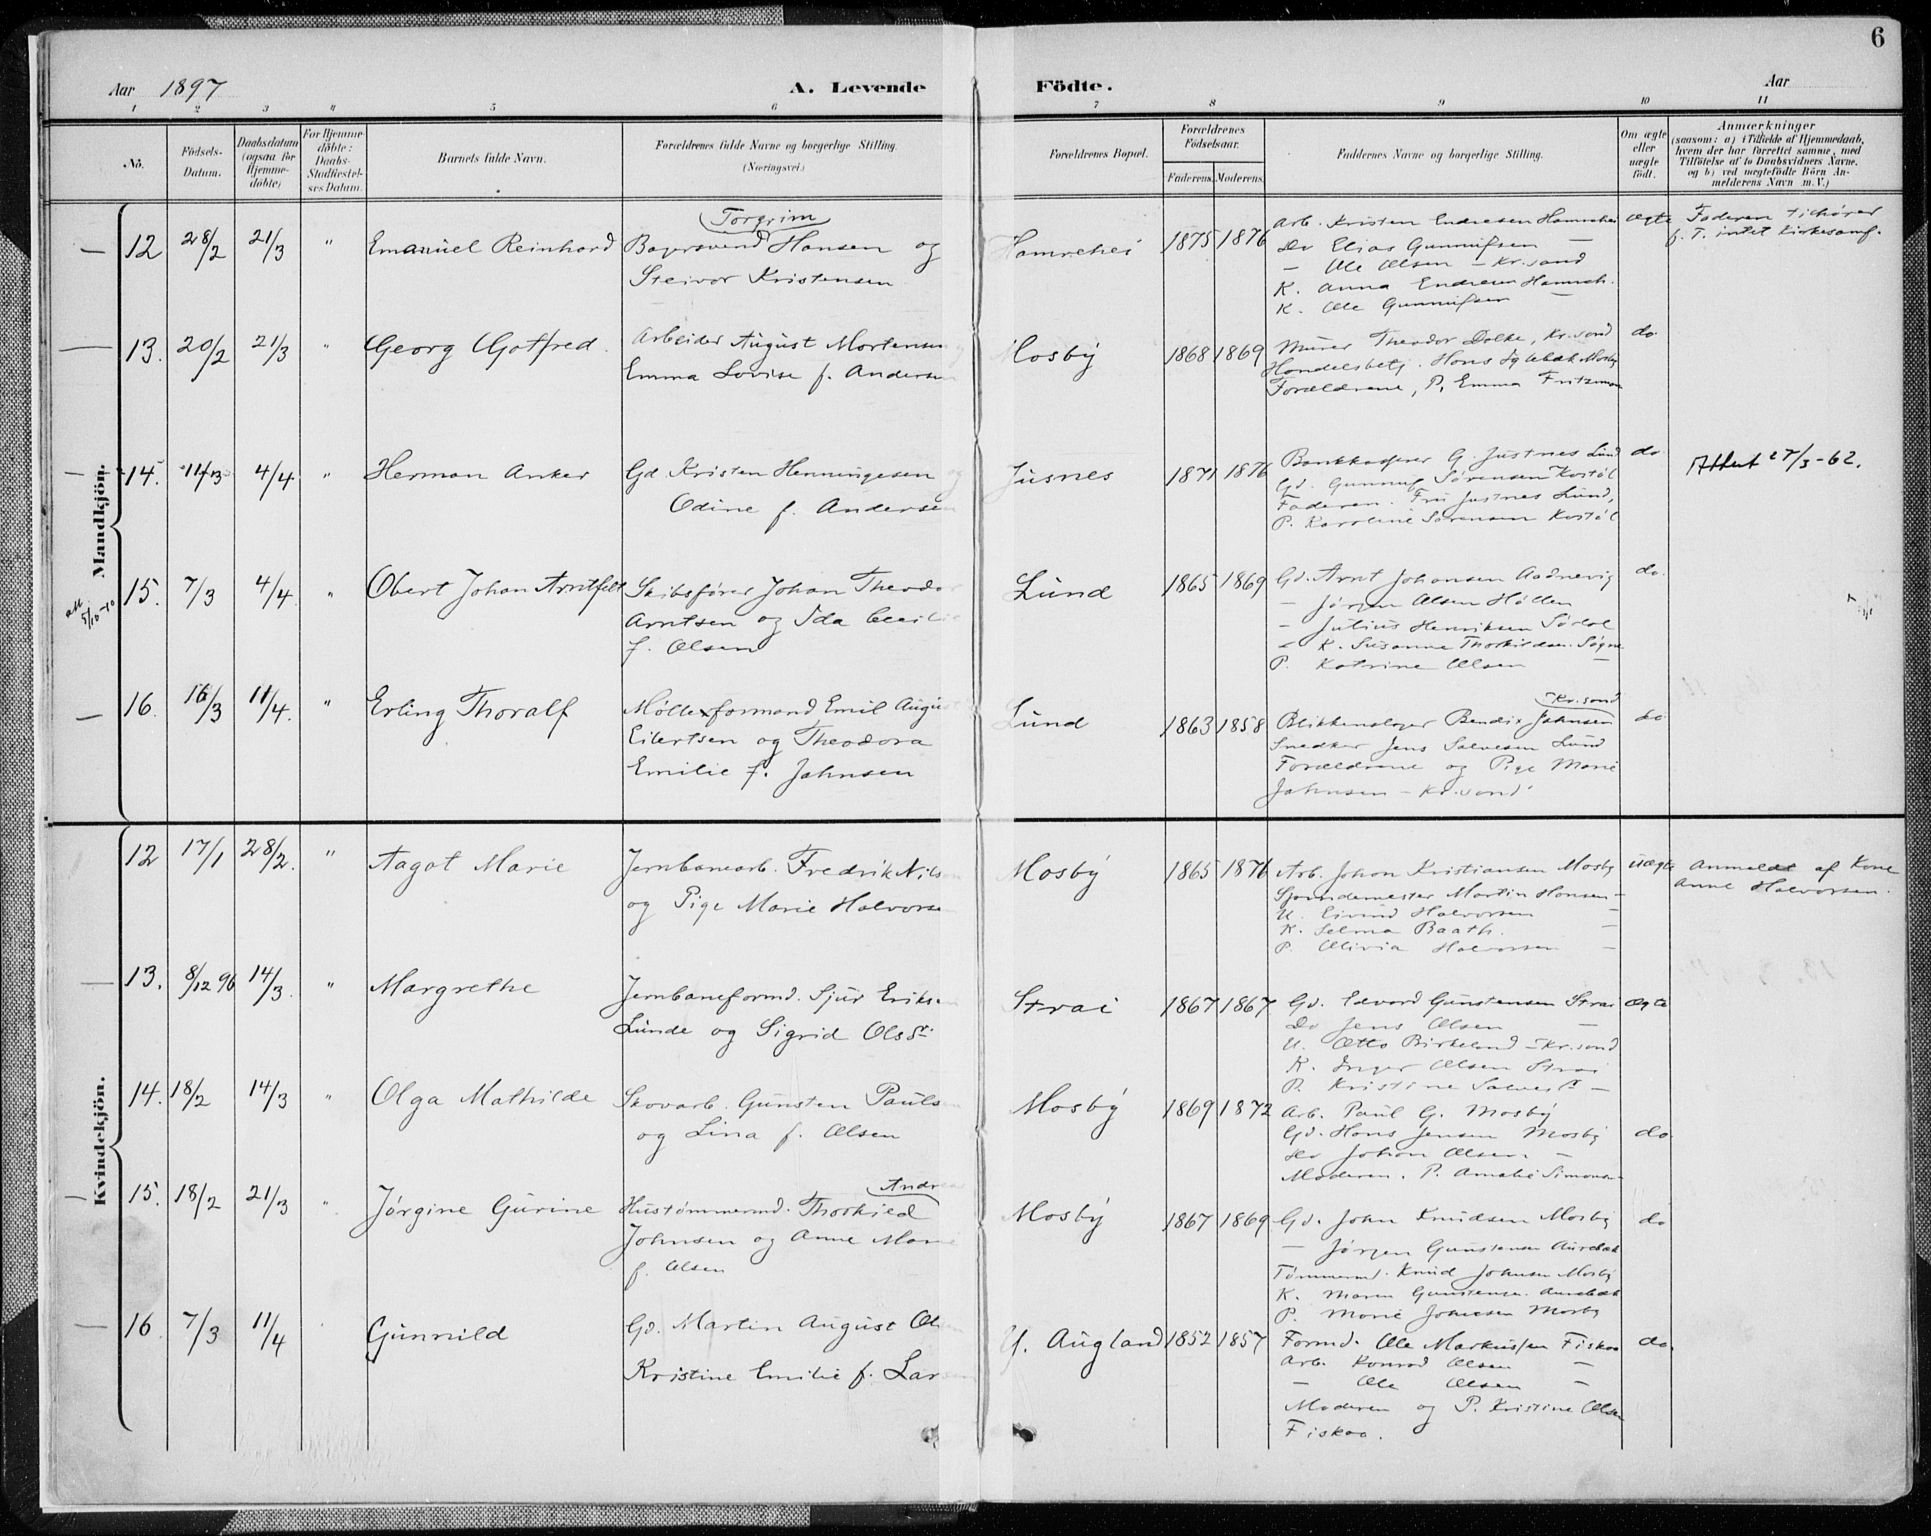 6
Aar 1897
A. Levende Födte.
Aar
1 2 3 4 5 6 7 8 9 10 11
No.
Födsels-Datum.
Daabsdatum (ogsaa for Hjemme-döbte)
For Hjemme-döbte: Daabs-Stadfæstel-ses Datum.
Barnets fulde Navn.
Forældrenes fulde Navne og borgerlige Stilling.
(Næringsvei.)
Forældrenes Bopæl.
Forældrenes Födselsaar.
Faderens. Moderens.
Faddernes Navne og borgerlige Stilling.
Om ægte eller uægte födt.
Anmærkninger
(saasom: a) i Tilfælde af Hjemmedaab,
hvem der har forrettet samme, med
Tilföielse af to Daabsvidners Navne,
og b) ved uægtefödte Börn An-
melderens Navn m. V.)
Mandkjön.
12 28/2 21/3 " Emanuel Reinhard
Torgrim
Bagersvend Hansen og
Steivor Kristensen
Hamrehei 1875 1876
Arb. Kristen Endresen Hamrehei
Do Elias Gunnufsen —
— Ole Olsen — Kr.sand
K. Anna Endresen Hamreh.
K. Ole Gunnufsen —
ægte
Faderen tilhører
f. T. intet Kirkesamf.
13. 20/2 21/3 " Georg Gotfred.
Arbeider August Mortensen
Emma Lovise f. Andersen
Mosby 1868 1869
Murer Theodor Dolke, Kr.sand
Handelsbetj. Hans Mosby
Forældrene, P. Emma
do.
14. 11/3 4/4 " Herman Anker
Gd. Kristen Henningesen og
Odine f. Andersen
Jusnes 1871 1876
Bankkasserer G. Justnes Lund
Gd. Gunnuf Sørensen Kostøl
Faderen. Fru Justnes Lund,
P. Karoline Sørensen Kostøl
do.
Attest 27/3-62.
att. 5/10-10
15. 7/3 4/4 " Obert Johan Arntfelt
Skibsfører Johan Theodor
Arntsen og Ida Cecilie
f. Olsen
Lund 1865 1869
Gd. Arnt Johansen Aadnevig
— Jørgen Olsen Høllen
— Julius Henriksen
K. Susanne Thorkildsen. Søgne
P. Katrine Olsen —
do.
16. 16/3 11/4. " Erling Thoralf
Mølleformand Emil August
Eilertsen og Theodora
Emilie f. Jahnsen
Lund 1863 1858
Kr.sand
Blikkenslager Bendix Jahnsen
Snedker Jens Salvesen Lund
Forældrene og Pige Marie
Jahnsen — Kr.sand
do
Kvindekjön.
12 17/1 28/2. " Aagot Marie
Jernbanearb. Fredrik Nilsen
og Pige Marie Halvorsen
Mosby 1865 1876
Arb. Johan Kristiansen Mosby
Spindemester Martin Hansen —
U. Eivind Halvorsen —
K. Selma Baath. —
P. Olivia Halvorsen —
uægte
Anmeldt af Kone
Anne Halvorsen.
13. 8/12 96 14/3. " Margrethe
Jernbaneformd. Sjur Eriksen
Lunde og Sigrid Olsdt.
Strai 1867 1867
Gd. Edvard Gunstensen Strai
Do Jens Olsen —
U. Otto Birkeland — Kr.sand
K. Inger Olsen Strai
P. Kristine —
ægte
14. 18/2 14/3 " Olga Mathilde
Skovarb. Gunsten Paulsen
og Lina f. Olsen
Mosby 1869 1872
Arb. Paul G. Mosby
Gd. Hans Jensen Mosby
do Johan Olsen —
Moderen. P. Amalie Simonsen
do.
15. 18/2 21/3 " Jørgine Gurine
Andreas
Hustømmermd. Thorkild
Johnsen og Anne Marie
f. Olsen
Mosby 1867 1869
Gd. John Knudsen Mosby
— Jørgen Gunstensen Aurebæk
Tømmermd. Knud Johnsen Mosby
K. Maren Gunstensen Aurebæk
P. Marie Johnsen Mosby
do
16 7/3 11/4 Gunnild
Gd. Martin August Olsen
Kristine Emilie f. Larsen
Y. Augland 1852 1857
Formd. Ole Markussen Fiskaa
Arb. Konrad Olsen —
— Ole Olsen —
Moderen og P. Kristine Olsen
Fiskaa.
do.